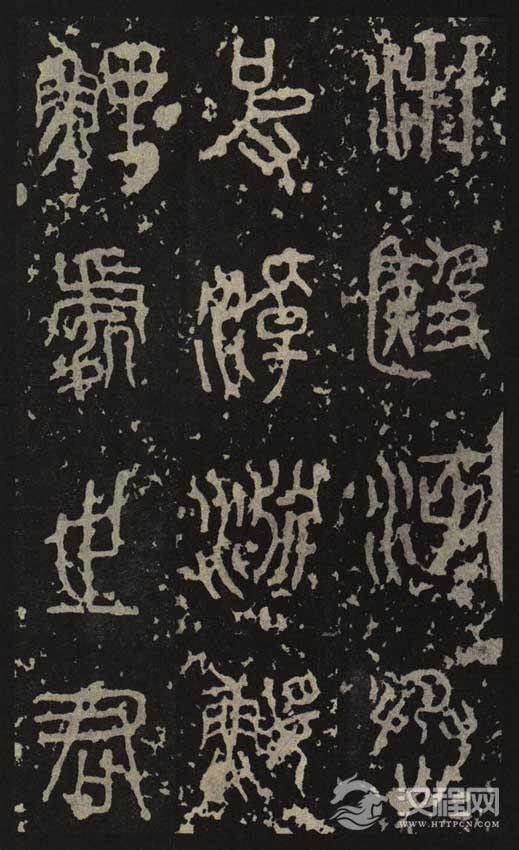 汧殹沔丞
皮淖淵鰋
鯉處之君
汉程网
WWW.HTTPCN.COM